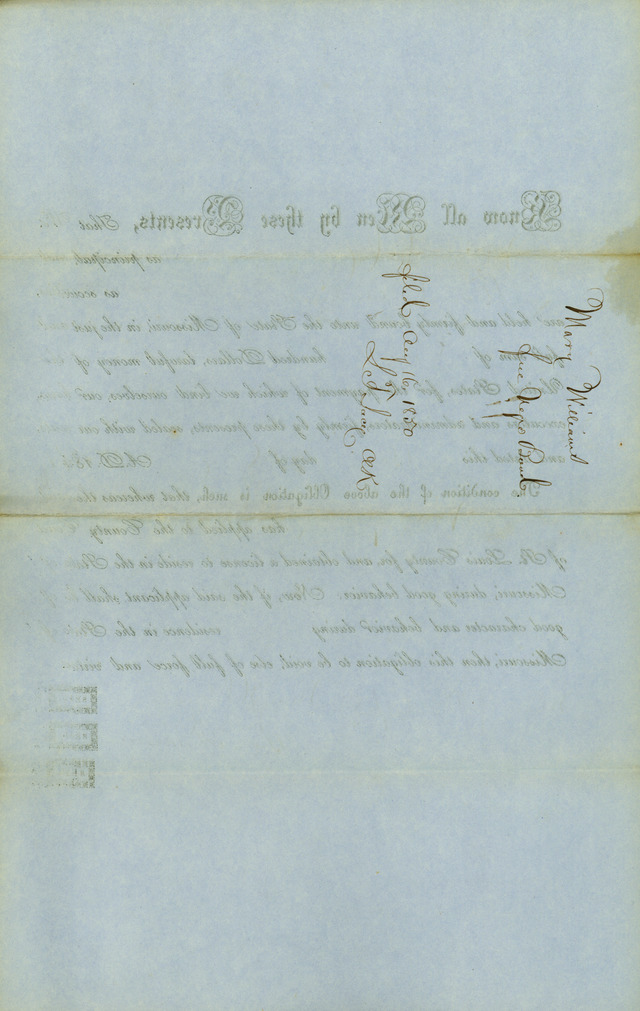 Mary Williams
Free Negro Bond
filed Aug 16, 1850
Know all Men by these Presents, That
as principal,
as
are held and firmly bound unto the State of Missouri, in the just
of hundred Dollars, lawful money of
States, for payment of which we bind ourselves, our
and administrators, firmly by these presents, sealed with our
this day of A.D. 185
The condition of the above Obligation is such, that whereas the
has applied to the County
of St. Louis County for, and obtained a license to reside in the
Missouri, during good behavior: Now, if the said applicant shall be
good character and behavior during residence in the State
Missouri, then this obligation to be void, else of full force and